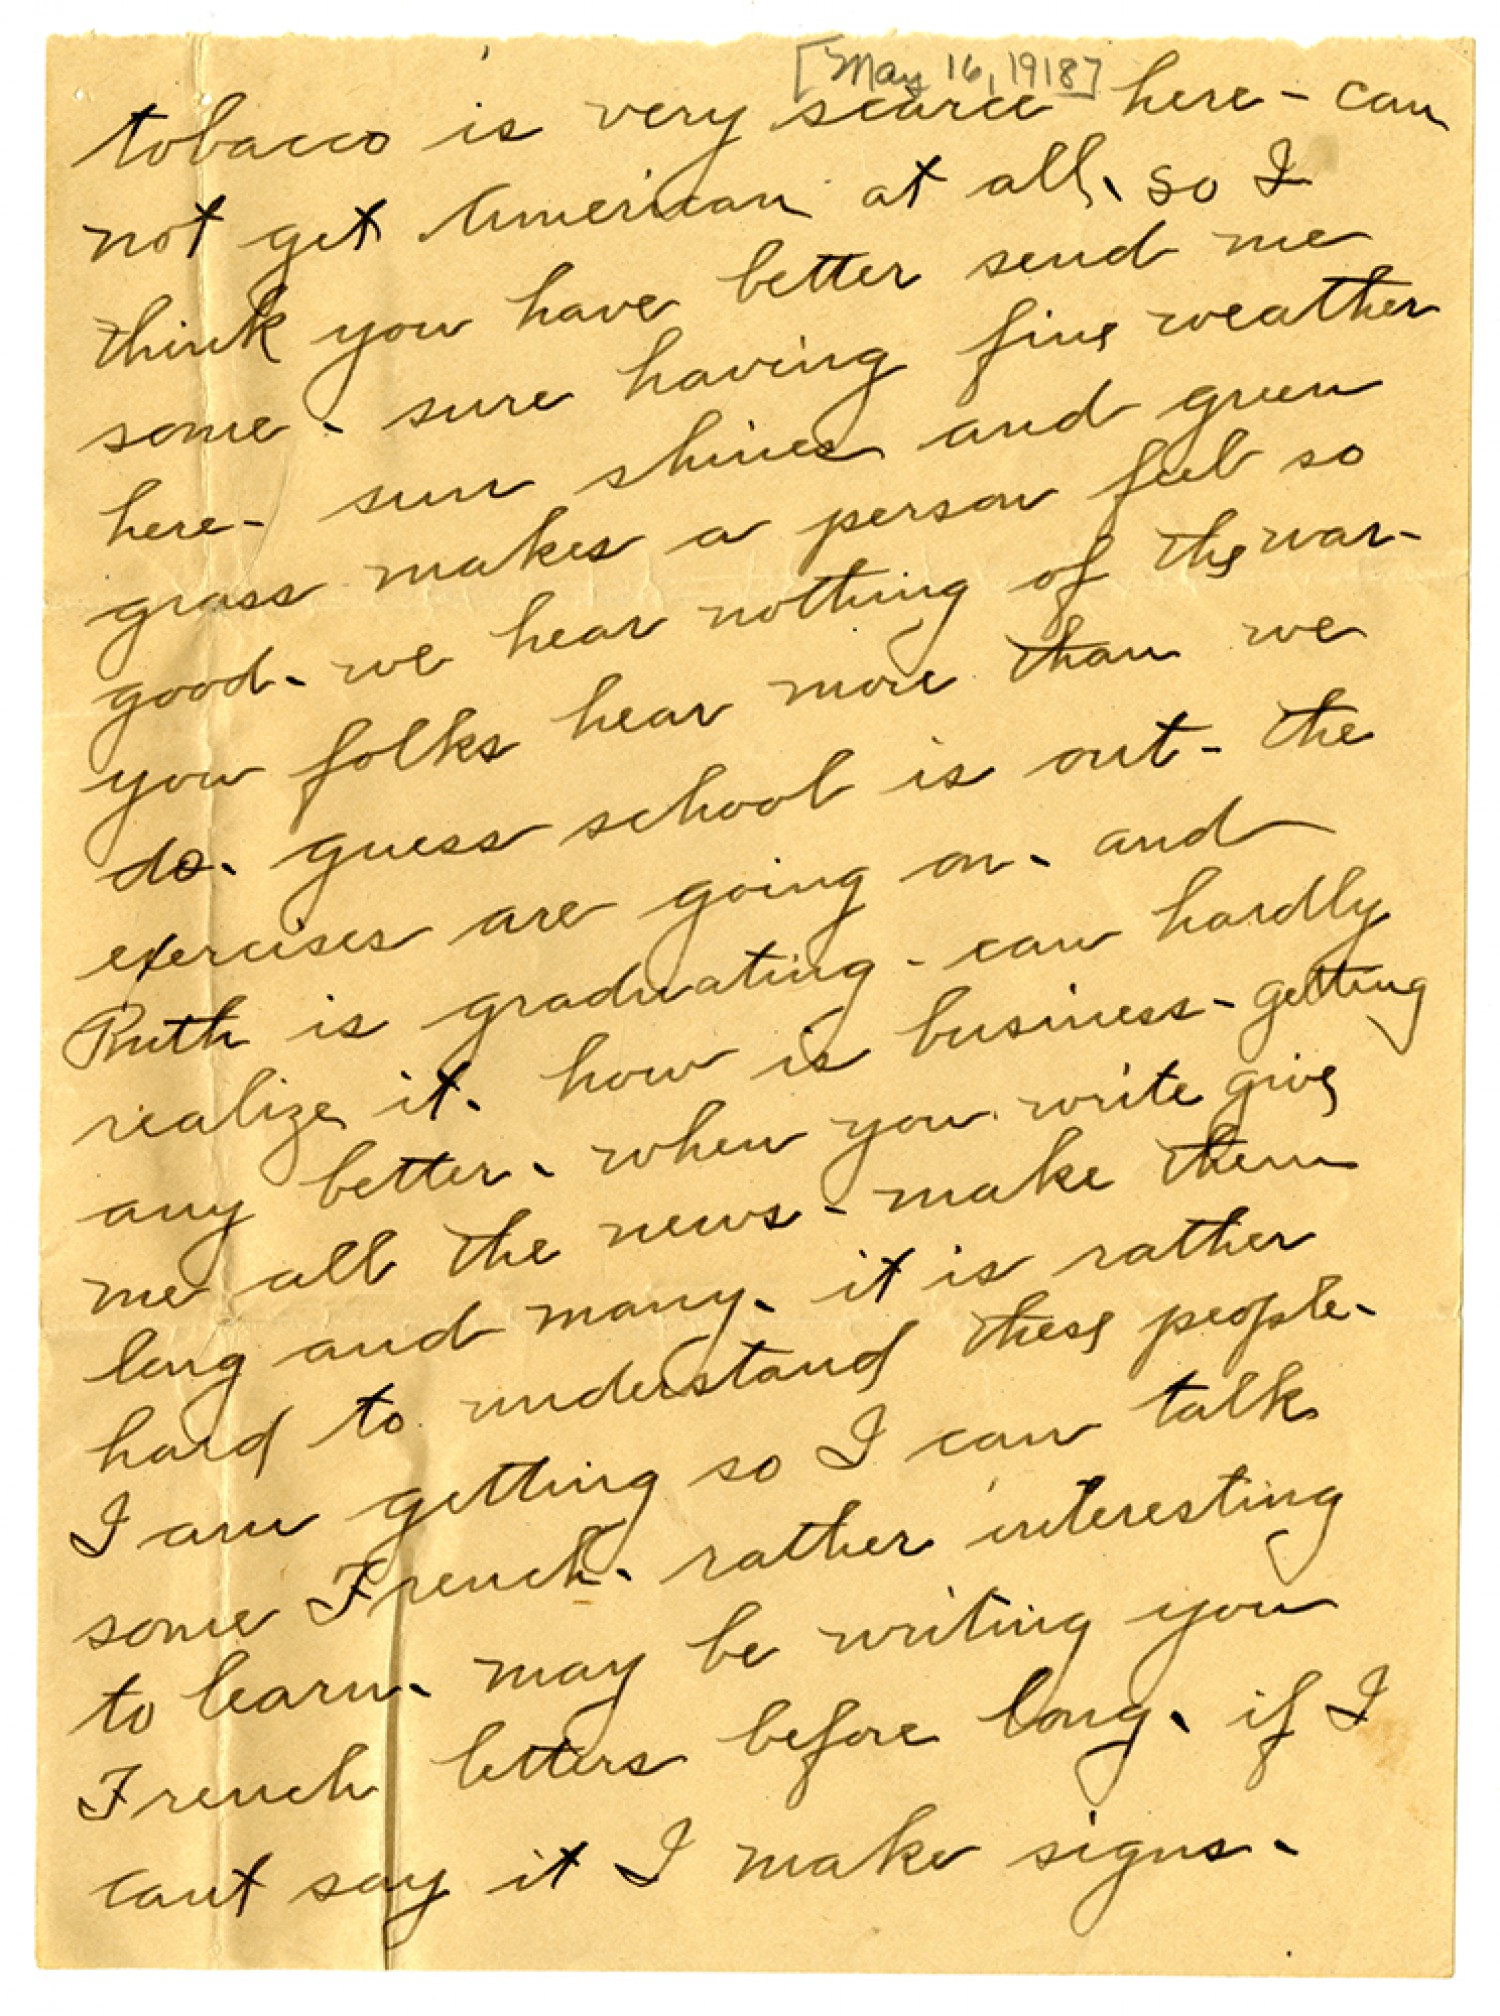 [May 16, 1918]
tobacco is very scarce here - can
not get American at all. so I
think you have better send me
some. sure having fine weather
here - sun shines and green
grass makes a person feel so
good. we hear nothing of the war -
you folks hear more than we
do. guess school is out - the
exercises are going on. and
Ruth is graduating - can hardly
realize it. how is business - getting
any better. when you write give
me all the news - make them
long and many. it is rather
hard to understand these people -
I am getting so I can talk
some French. rather interesting
to learn. may be writing you
French letters before long. if I
cant say it I make signs.